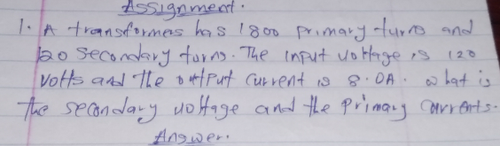 Assignment.
1. A transformers has 1800 primary turns and
120 secondary turns. The input voltage is 120
volts and the output current is 8.0A. what is
the secondary voltage and the primary currents.
Answer.